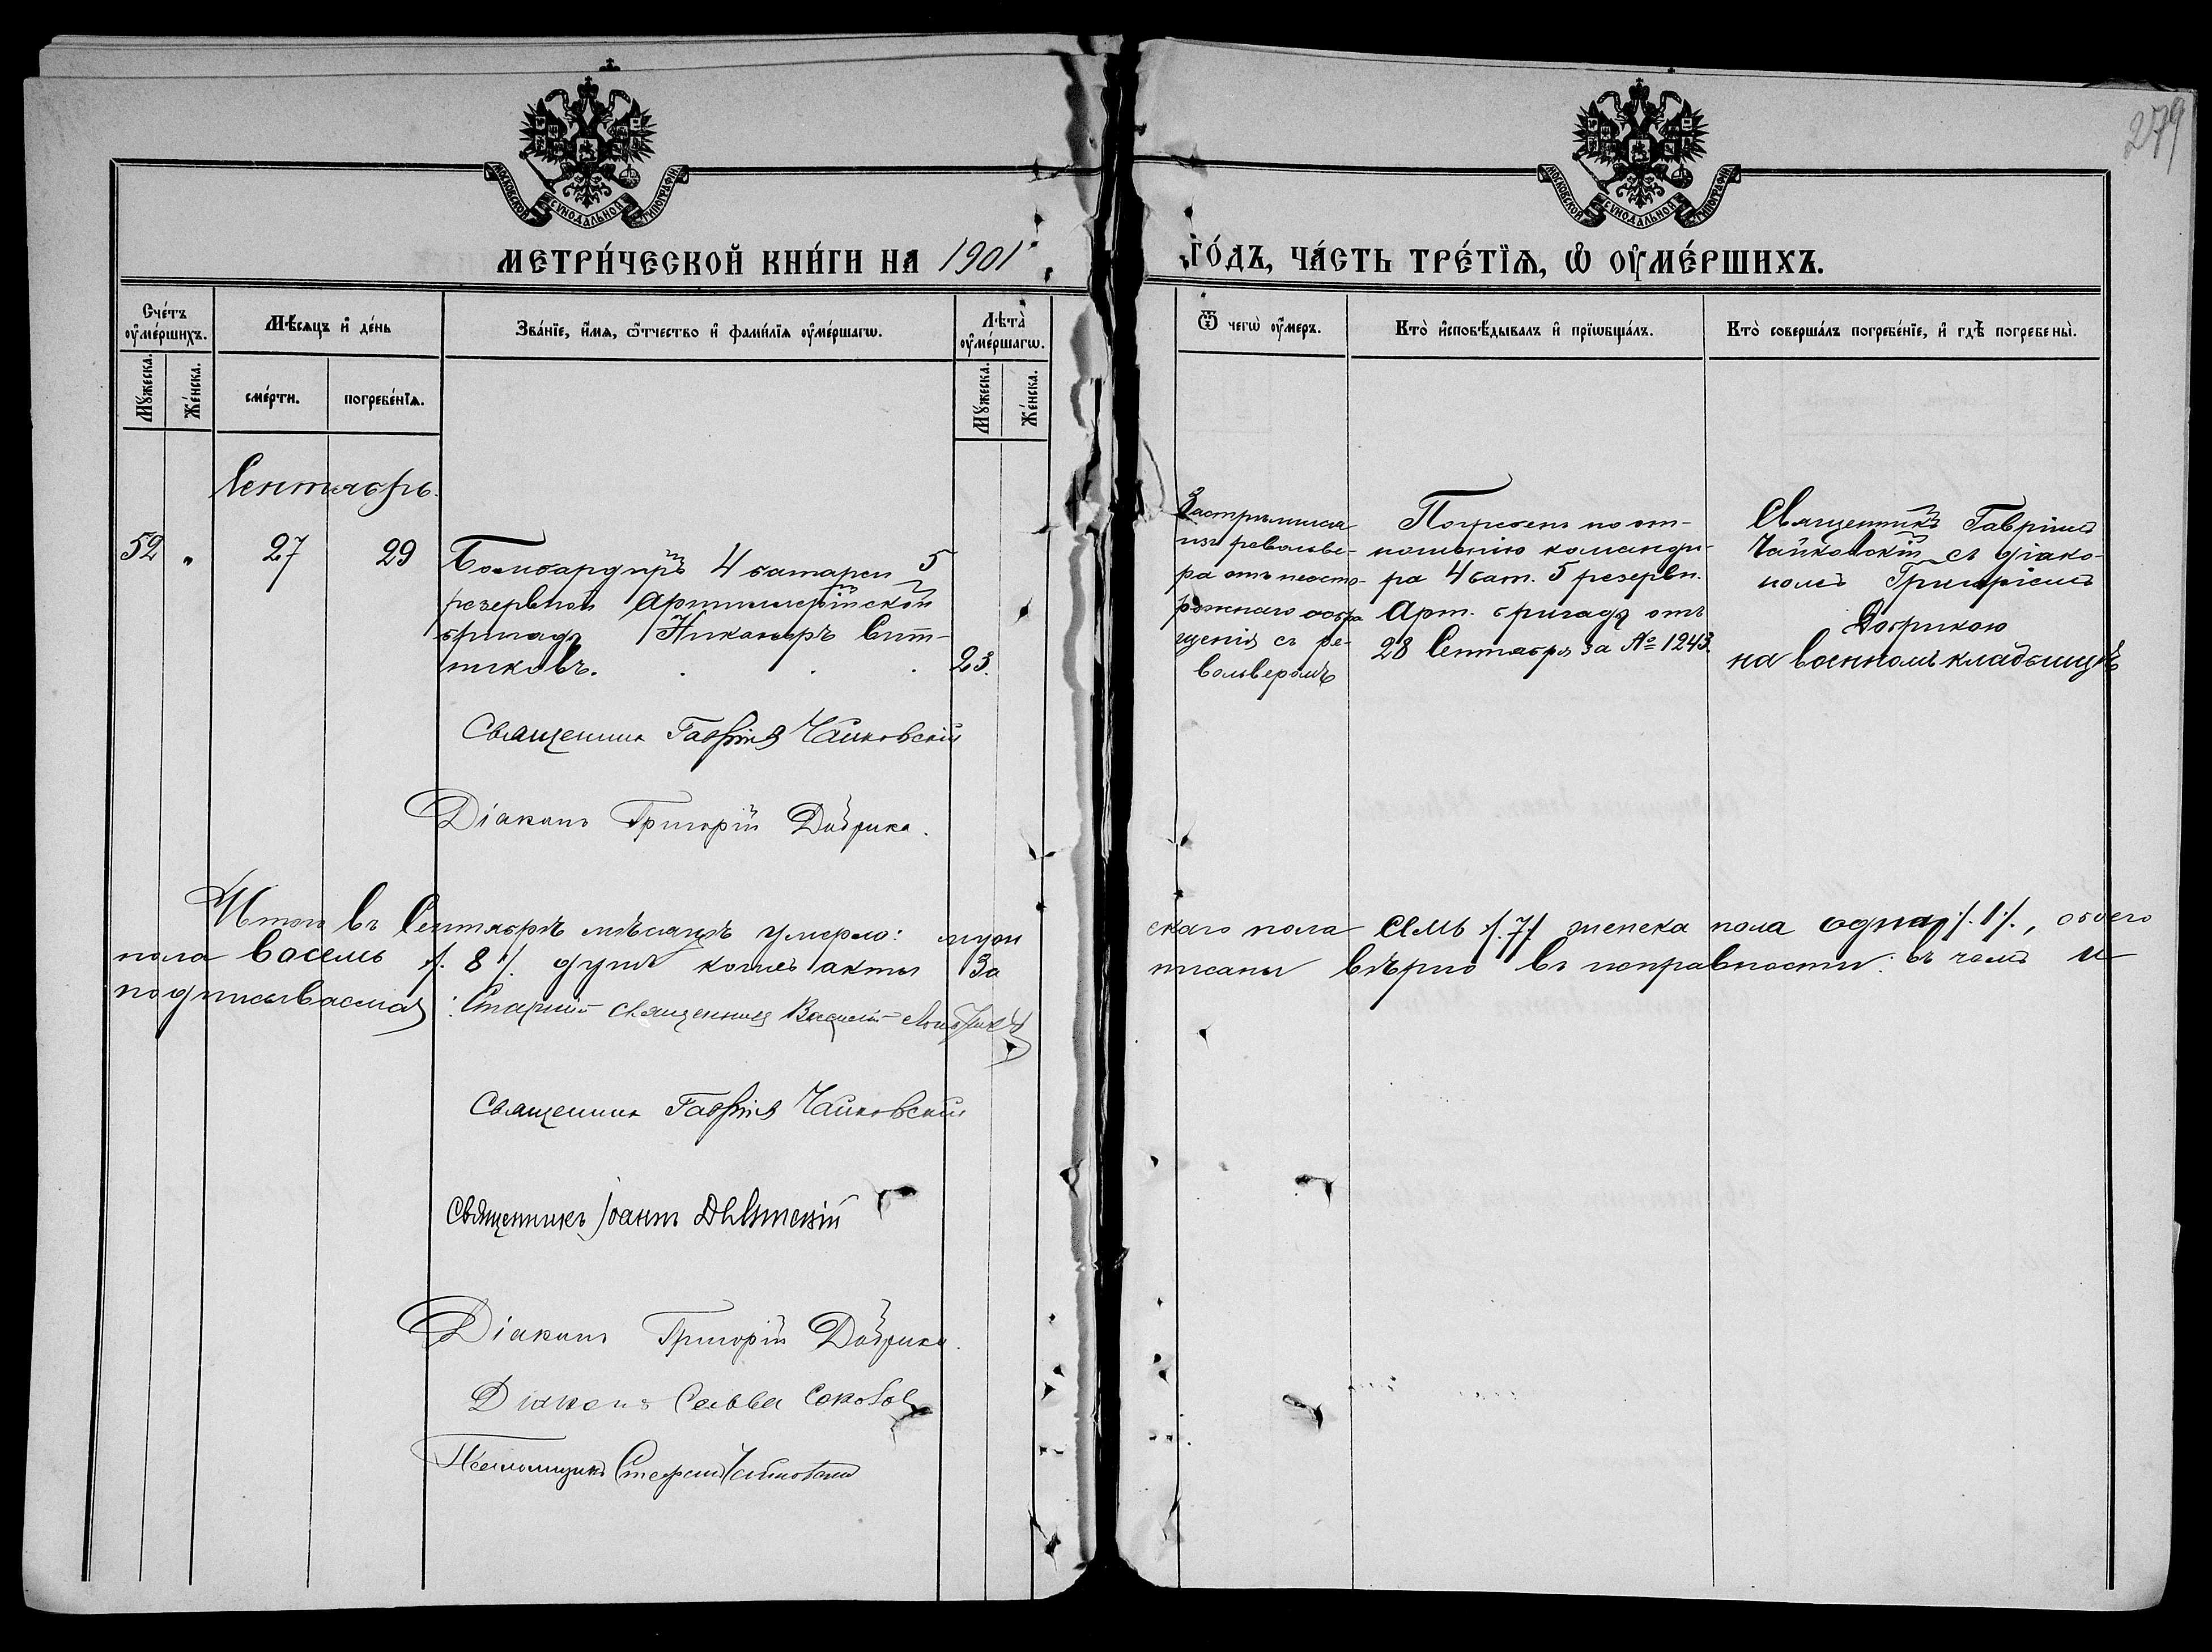 279
МОСКОВСКОЙ СѴНОДАЛЬНОЙ ТИПОГРАФІИ
МОСКОВСКОЙ СѴНОДАЛЬНОЙ ТИПОГРАФІИ
МЕТРИ́ЧЕСКОЙ КНИ́ГИ НА 1901
ГО́ДЪ, ЧА́СТЬ ТРЕ́ТЇѦ, Ѡ ОУ҆МЕ́РШИХЪ.
Сче́тъ оу҆ме́ршихъ.
Мѣ́сяцъ и҆ де́нь
Зва́нїе, и҆́мѧ, ѻ҆́тчество и҆ фами́лїѧ оу҆ме́ршагѡ.
Лѣ́та оу҆ме́ршагѡ.
Ѿ чегѡ̀ оу҆́меръ.
Кто̀ и҆сповѣ́дывалъ и҆ прїѡбща́лъ.
Кто̀ соверша́лъ погребе́нїе, и҆ гдѣ̀ погребены̀.
Мꙋ́жеска.
Же́нска.
сме́рти.
погребе́нїѧ.
Мꙋ́жеска.
Же́нска.
Сентябрь.
52 " 27 29
Бомбардиръ 4 батареи 5
резервной Артиллерійской
бригады Никаноръ Сит-
никовъ. . . . 23.
Застрѣлился
изъ револьве-
ра отъ неосто-
рожнаго обра
щенія съ ре-
вольверомъ
Погребенъ по от-
ношенію команди-
ра 4 бат. 5 резервн.
Арт. бригады отъ
28 Сентября за № 1243.
Священникъ Гавріилъ
Чайковскій съ діако-
номъ Григоріемъ
Добрикою
на военномъ кладбищѣ
Священникъ Гавріилъ Чайковскій
Діаконъ Григорій Добрика.
Итого въ Сентябрѣ мѣсяцѣ умерло: муж
скаго пола семь /.7/. женска пола одна /.1/., обоего
пола восемь /. 8 /. душъ коихъ акты за
писаны вѣрно въ исправности: въ чемъ и
подписываемся: Старшій священникъ Василій
Священникъ Гавріилъ Чайковскій
Священникъ Іоаннъ
Діаконъ Григорій Добрика.
Діаконъ Савва
Псаломщикъ Стефанъ